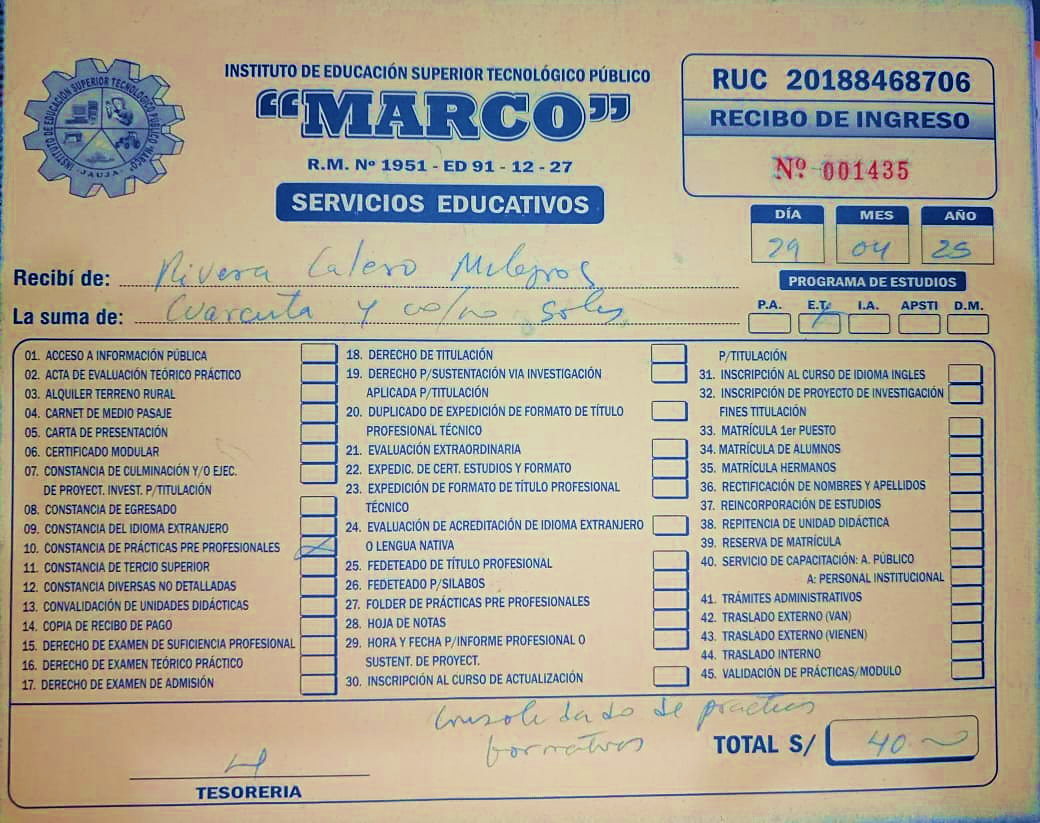 INSTITUTO DE EDUCACIÓN SUPERIOR TECNOLÓGICO PÚBLICO
"MARCO"
R.M. Nº 1951 - ED 91 - 12 - 27
SERVICIOS EDUCATIVOS
INSTITUTO DE EDUCACIÓN SUPERIOR TECNOLÓGICO PÚBLICO "MARCO"
- JAUJA -
RUC 20188468706
RECIBO DE INGRESO
Nº 001435
DÍA MES AÑO
29 04 25
Recibí de: Rivera Calero Milagros
La suma de: Cuarenta y 00/100 soles
PROGRAMA DE ESTUDIOS
P.A. E.T. I.A. APSTI D.M.
01. ACCESO A INFORMACIÓN PÚBLICA
02. ACTA DE EVALUACIÓN TEÓRICO PRÁCTICO
03. ALQUILER TERRENO RURAL
04. CARNET DE MEDIO PASAJE
05. CARTA DE PRESENTACIÓN
06. CERTIFICADO MODULAR
07. CONSTANCIA DE CULMINACIÓN Y/O EJEC.
DE PROYECT. INVEST. P/TITULACIÓN
08. CONSTANCIA DE EGRESADO
09. CONSTANCIA DEL IDIOMA EXTRANJERO
10. CONSTANCIA DE PRÁCTICAS PRE PROFESIONALES
11. CONSTANCIA DE TERCIO SUPERIOR
12. CONSTANCIA DIVERSAS NO DETALLADAS
13. CONVALIDACIÓN DE UNIDADES DIDÁCTICAS
14. COPIA DE RECIBO DE PAGO
15. DERECHO DE EXAMEN DE SUFICIENCIA PROFESIONAL
16. DERECHO DE EXAMEN TEÓRICO PRÁCTICO
17. DERECHO DE EXAMEN DE ADMISIÓN
18. DERECHO DE TITULACIÓN
19. DERECHO P/SUSTENTACIÓN VIA INVESTIGACIÓN
APLICADA P/TITULACIÓN
20. DUPLICADO DE EXPEDICIÓN DE FORMATO DE TÍTULO
PROFESIONAL TÉCNICO
21. EVALUACIÓN EXTRAORDINARIA
22. EXPEDIC. DE CERT. ESTUDIOS Y FORMATO
23. EXPEDICIÓN DE FORMATO DE TÍTULO PROFESIONAL
TÉCNICO
24. EVALUACIÓN DE ACREDITACIÓN DE IDIOMA EXTRANJERO
O LENGUA NATIVA
25. FEDETEADO DE TÍTULO PROFESIONAL
26. FEDETEADO P/SILABOS
27. FOLDER DE PRÁCTICAS PRE PROFESIONALES
28. HOJA DE NOTAS
29. HORA Y FECHA P/INFORME PROFESIONAL O
SUSTENT. DE PROYECT.
30. INSCRIPCIÓN AL CURSO DE ACTUALIZACIÓN
P/TITULACIÓN
31. INSCRIPCIÓN AL CURSO DE IDIOMA INGLES
32. INSCRIPCIÓN DE PROYECTO DE INVESTIGACIÓN
FINES TITULACIÓN
33. MATRÍCULA 1er PUESTO
34. MATRÍCULA DE ALUMNOS
35. MATRÍCULA HERMANOS
36. RECTIFICACIÓN DE NOMBRES Y APELLIDOS
37. REINCORPORACIÓN DE ESTUDIOS
38. REPITENCIA DE UNIDAD DIDÁCTICA
39. RESERVA DE MATRÍCULA
40. SERVICIO DE CAPACITACIÓN: A. PÚBLICO
A: PERSONAL INSTITUCIONAL
41. TRÁMITES ADMINISTRATIVOS
42. TRASLADO EXTERNO (VAN)
43. TRASLADO EXTERNO (VIENEN)
44. TRASLADO INTERNO
45. VALIDACIÓN DE PRÁCTICAS/MODULO
Consolidado de practicas
formativas
TOTAL S/ 40.
TESORERIA